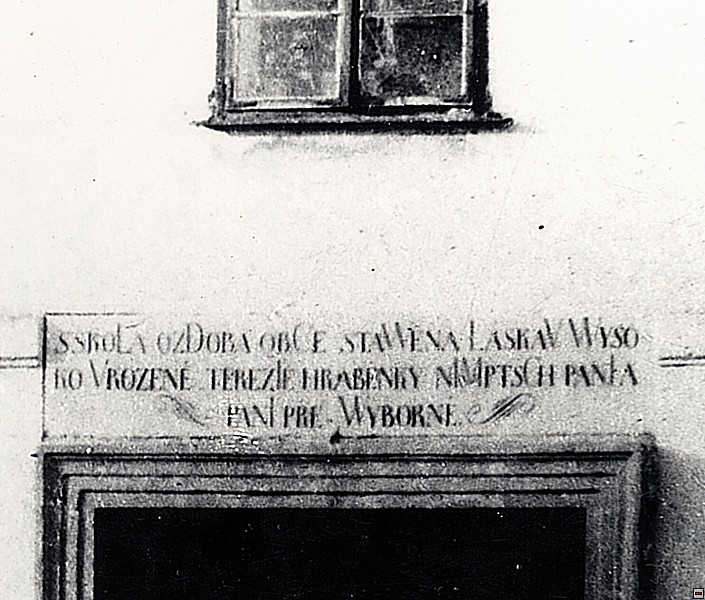 SSKOLA OZDOBA OBCE STAWĚNA LASKAV WYSO
KO VROZENÉ TEREZIE HRABĚNKY NIMPTSCH PANÍ A
PANÍ PRE WYBORNE